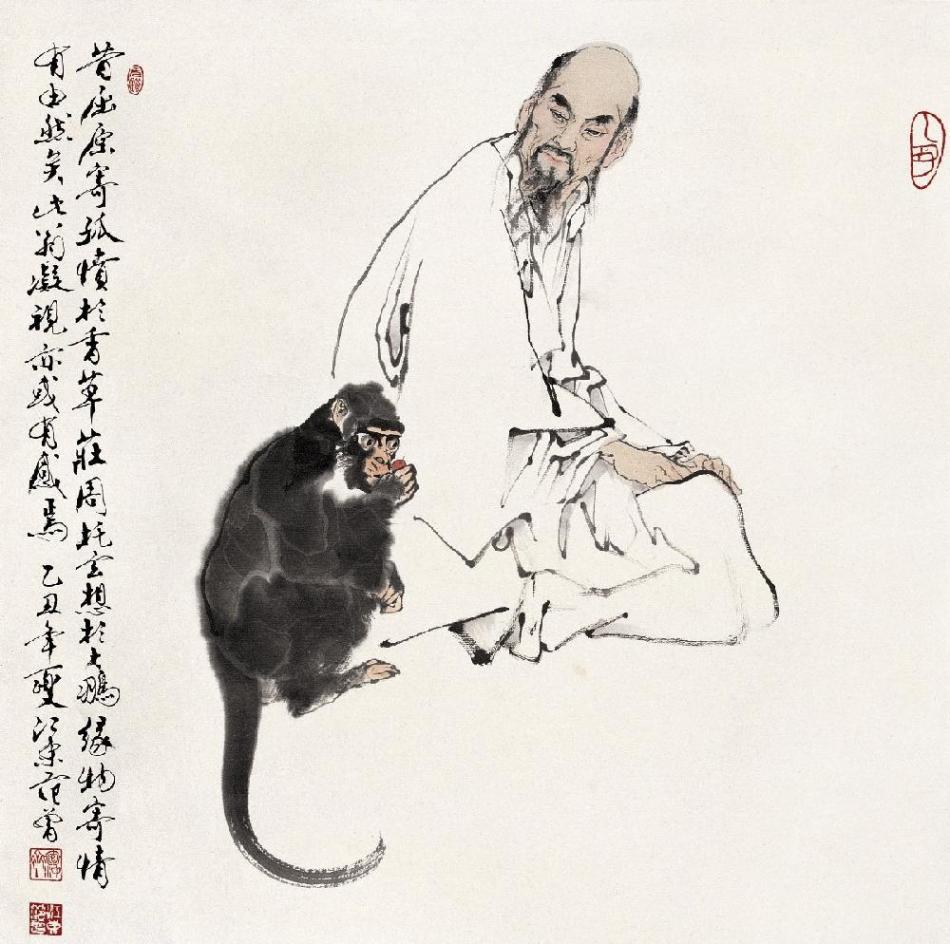 昔屈原寄孤憤於香草莊周託玄想於大鵬緣物寄情
有由然矣此翁凝視亦或有感焉 乙丑年 江東范曾